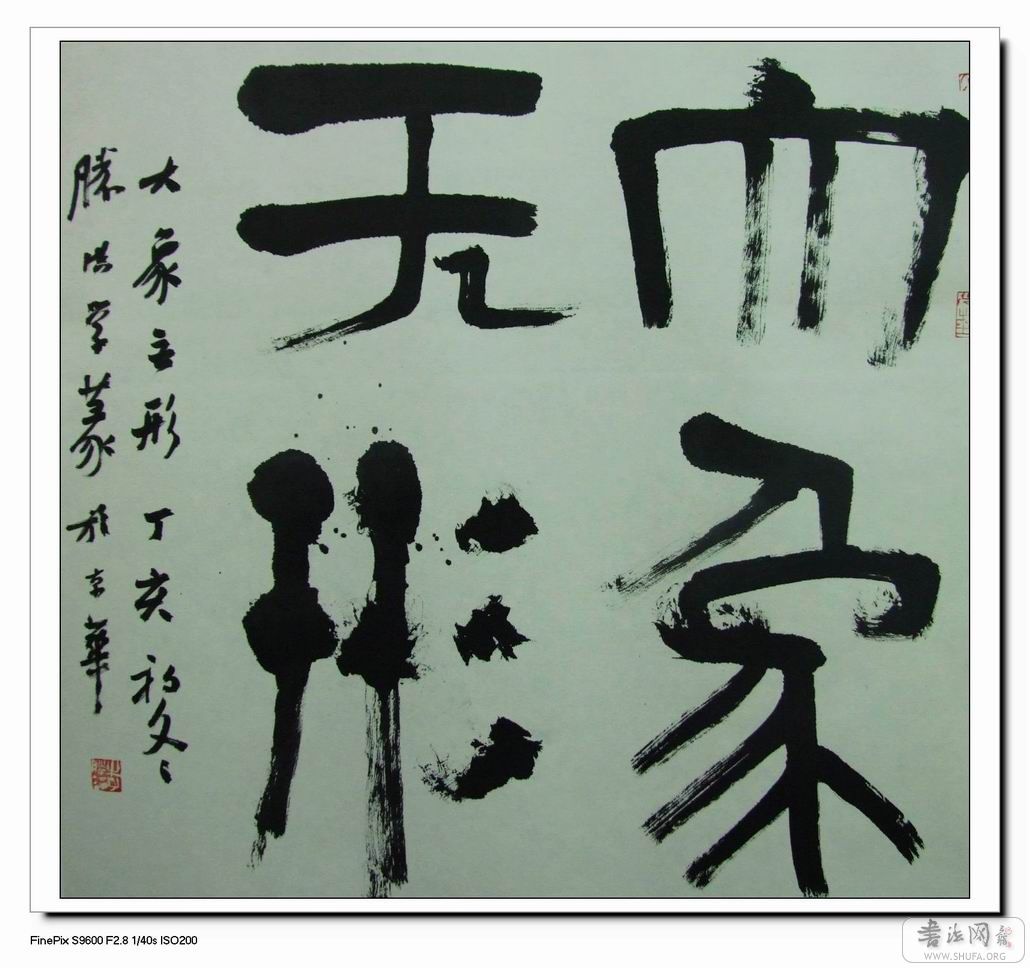 大象
无形
大象无形 丁亥初冬
洪学篆於京華
FinePix S9600 F2.8 1/40s ISO200
书法网
WWW.SHUFA.ORG